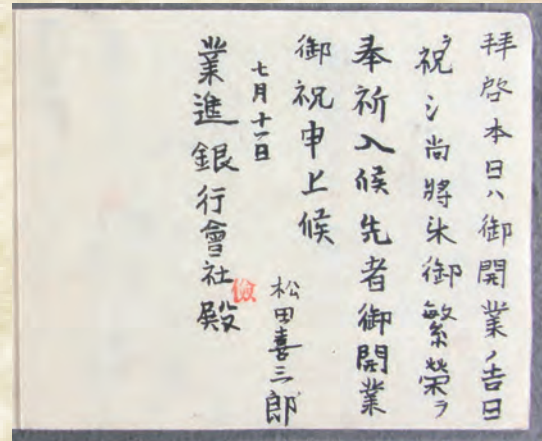 拝啓本日ハ御開業ノ吉日
ヲ祝シ尚將来御繁榮ヲ
奉祈入候先者御開業
御祝申上候
七月十一日
松田喜三郎
業進銀行會社殿